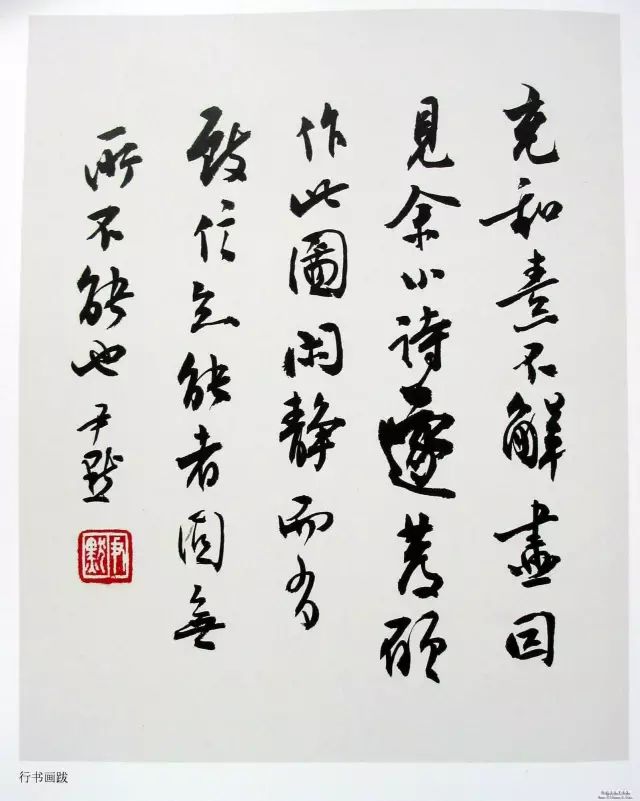 充和素不解畫因
見余小詩遂發願
作此圖閑靜而有
致信知能者固無
所不能也尹默
尹默
行书画跋